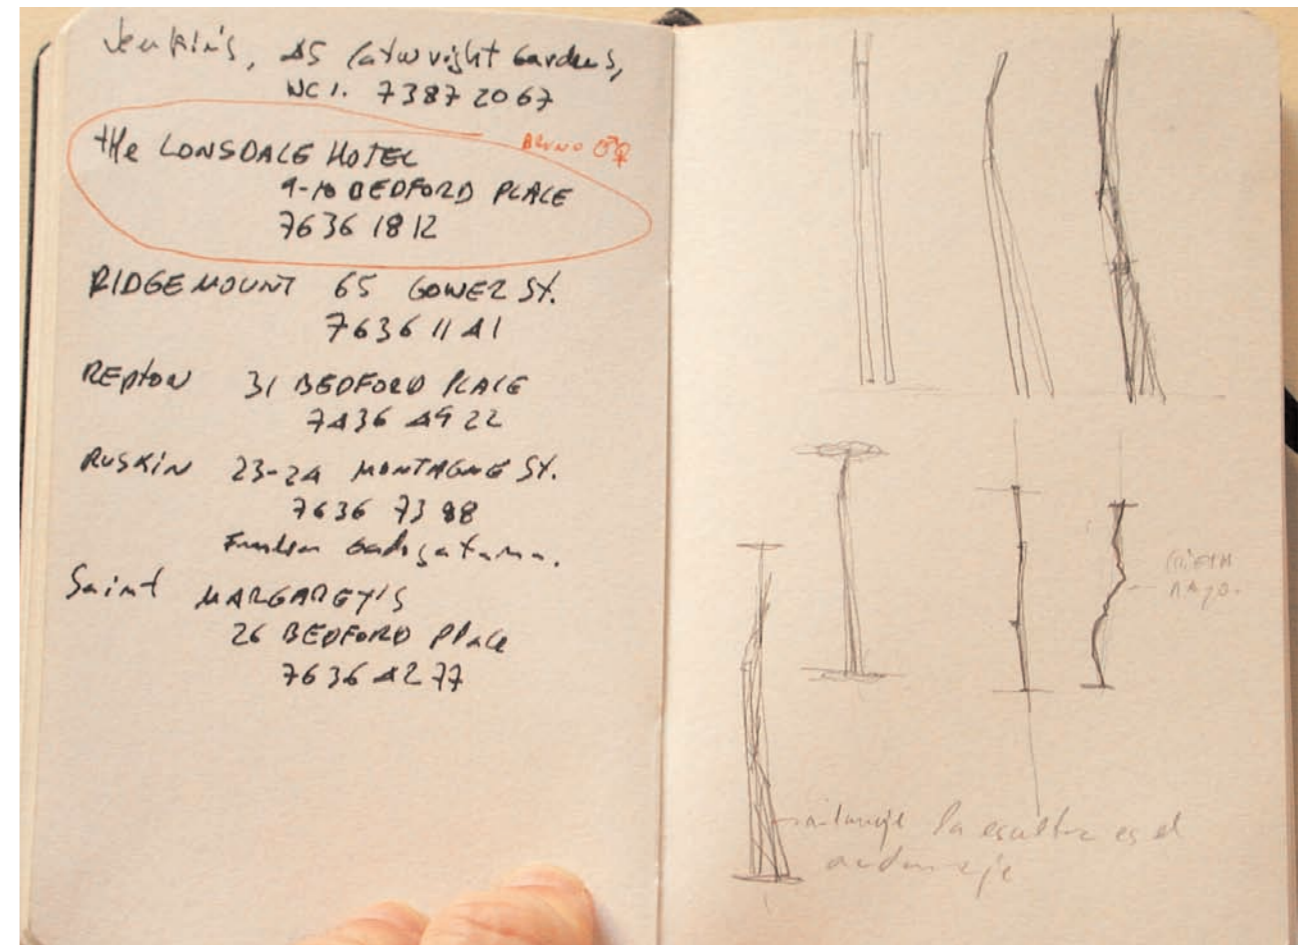 Jenkins, 45 Cartwright Gardens,
WC1. 7387 2067
the LONSDALE HOTEL
BRUNO ♂♀
9-10 BEDFORD PLACE
7636 1812
RIDGEMOUNT 65 GOWER ST.
7636 1141
REPTON 31 BEDFORD PLACE
7436 4922
RUSKIN 23-24 MONTAGUE ST.
7636 7388
Saint MARGARET'S
26 BEDFORD Place
7636 4277
rayo.
andamiaje la escultura es el
andamiaje